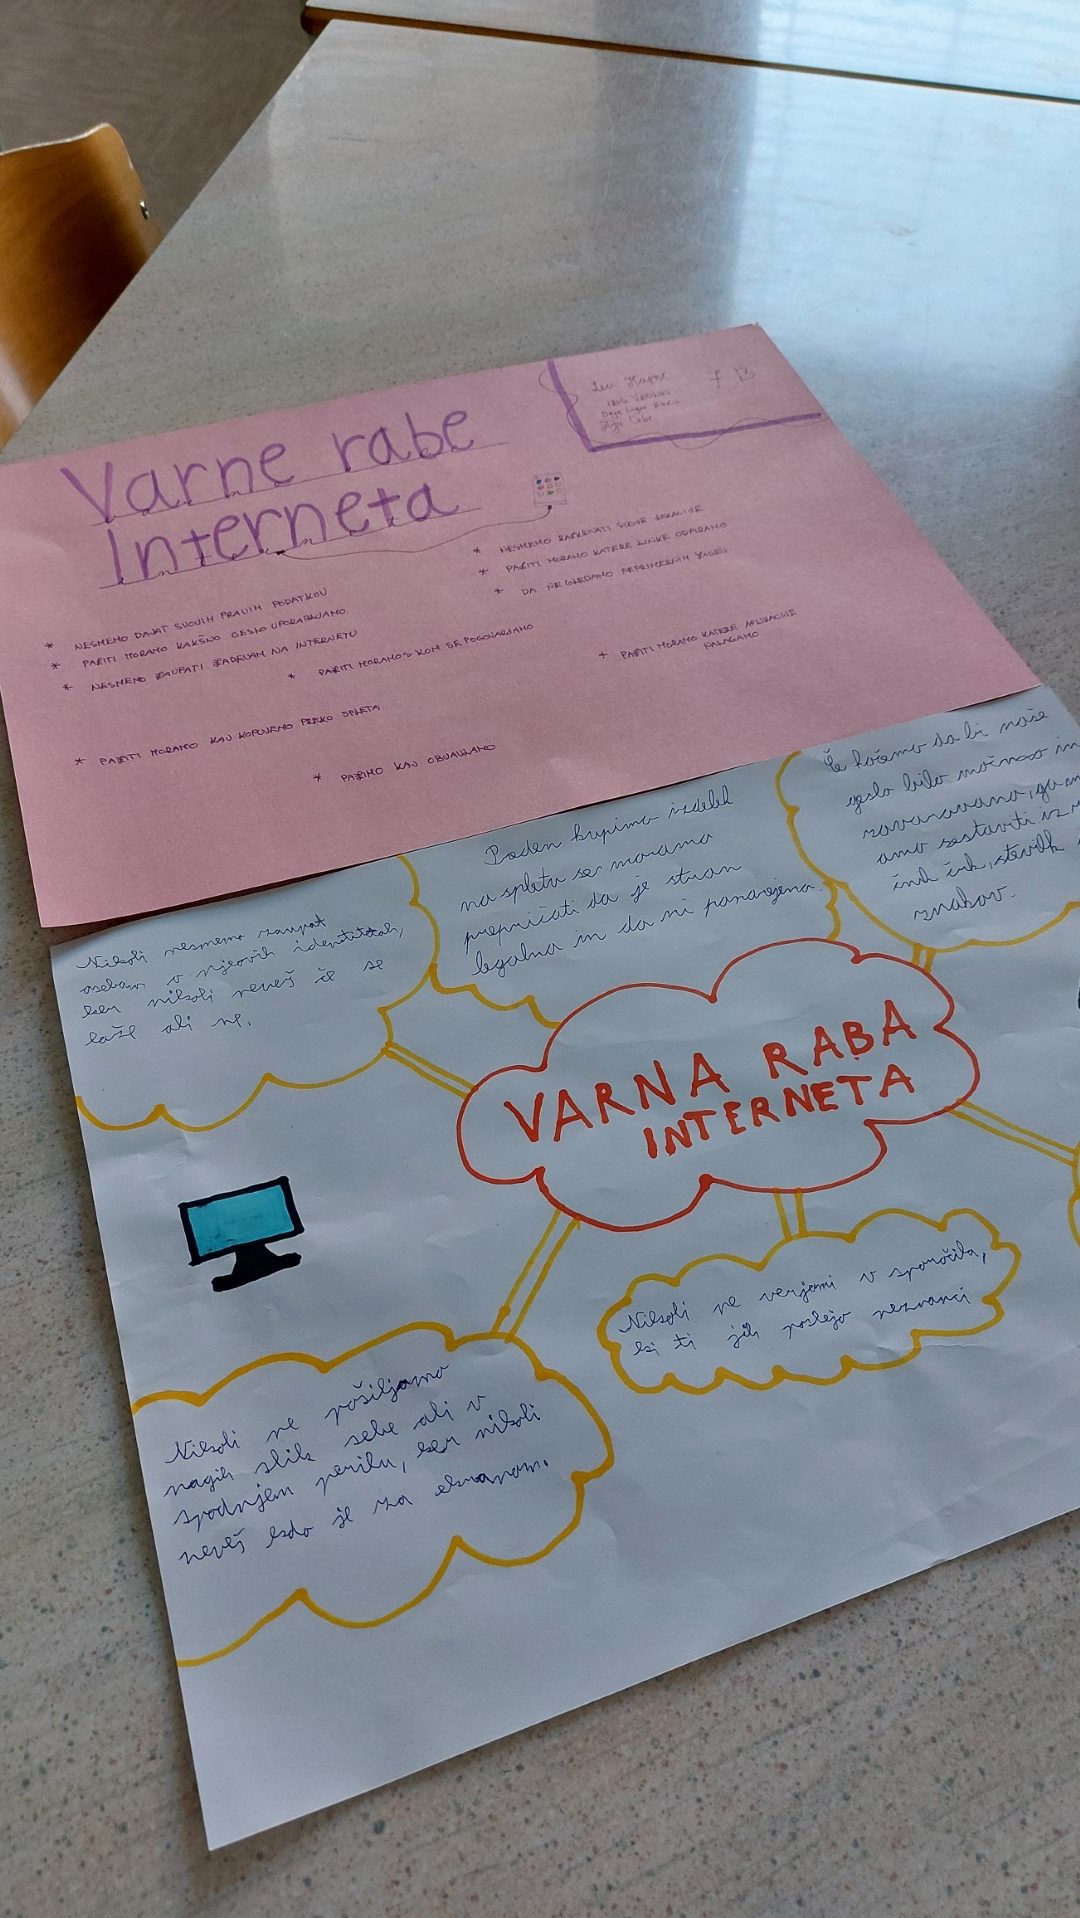 Varne rabe
Interneta
7 B
* NESMEMO DAJAT SVOJIH PRAVIH PODATKOV
* PAZITI MORAMO KAKŠNO GESLO UPORABLJAMO
* NESMEMO ZAUPATI ZADEVAM NA INTERNETU
* PAZITI MORAMO S KOM SE POGOVARJAMO
* PAZITI MORAMO KAJ KUPUJEMO PREKO SPLETA
* PAZIMO KAJ OBJAVLJAMO
* NESMEMO RAZKRIVATI SVOJE LOKACIJE
* PAZITI MORAMO KATERE LINKE ODPIRAMO
* DA NE GLEDAMO NEPRIMERNIH
* PAZITI MORAMO KATERE APLIKACIJE
NALAGAMO
Nikoli nesmemo zaupat
osebam v njeovih identitetah,
ker nikoli neveš če se
laže ali ne.
Preden kupimo izdelek
na spletu se moramo
prepričati da je stran
legalna in da ni ponarejena.
Če hočemo da bi naše
geslo bilo močno in
zavarovano, ga m
amo sestaviti iz
črk, številk
znakov.
VARNA RABA
INTERNETA
Nikoli ne verjemi v sporočila,
ki ti jih pošlejo neznanci
Nikoli ne pošiljamo
nagih slik sebe ali v
spodnjem perilu, ker nikoli
neveš kdo je za ekranom.